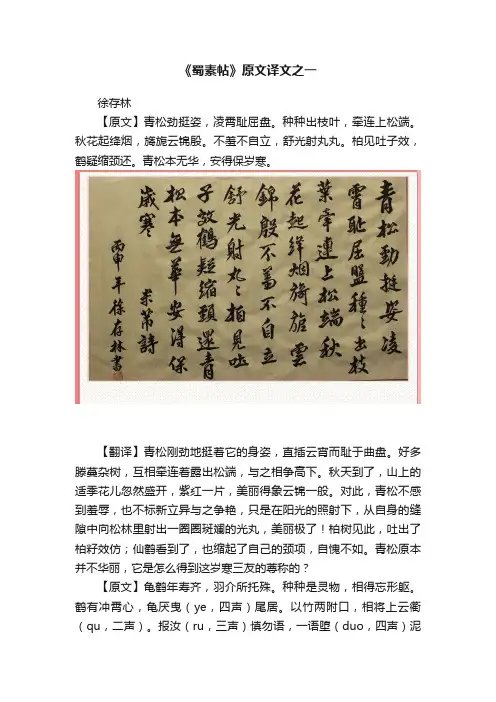 《蜀素帖》原文译文之一
徐存林
【原文】青松劲挺姿，凌霄耻屈盘。种种出枝叶，牵连上松端。
秋花起绛烟，旖旎云锦殷。不羞不自立，舒光射丸丸。柏见吐子效，
鹤疑缩颈还。青松本无华，安得保岁寒。
青松勁挺姿凌
霄恥屈盤種々出枝
葉牽連上松端秋
花起絳烟旖旎雲
錦殷不羞不自立
舒光射丸々栢見吐
子效鶴疑縮頸還青
松本無華安得保
歲寒 米芾詩
丙申年徐存林書
【翻译】青松刚劲地挺着它的身姿，直插云宵而耻于曲盘。好多
滕蔓杂树，互相牵连着露出松端，与之相争高下。秋天到了，山上的
适季花儿忽然盛开，紫红一片，美丽得象云锦一般。对此，青松不感
到羞辱，也不标新立异与之争艳，只是在阳光的照射下，从自身的缝
隙中向松林里射出一圈圈斑斓的光丸，美丽极了！柏树见此，吐出了
柏籽效仿；仙鹤看到了，也缩起了自己的颈项，自愧不如。青松原本
并不华丽，它是怎么得到这岁寒三友的尊称的？
【原文】龟鹤年寿齐，羽介所托殊。种种是灵物，相得忘形躯。
鹤有冲霄心，龟厌曳（ye，四声）尾居。以竹两附口，相将上云衢
（qu，二声）。报汝（ru，三声）慎勿语，一语堕（duo，四声）泥